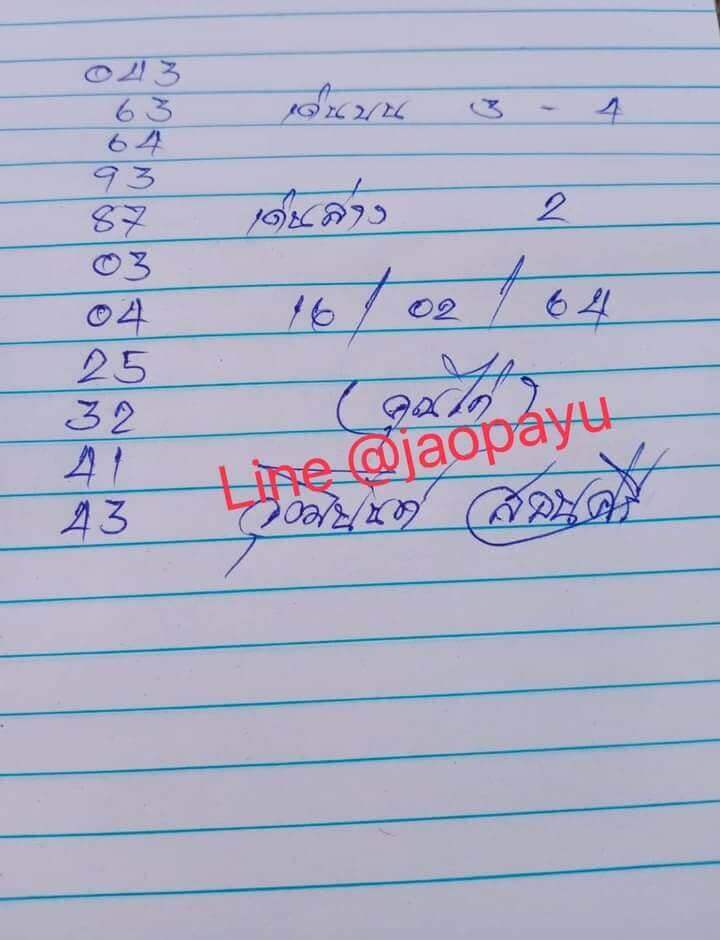 043
63 เด่นบน 3 - 4
64
93
87 เด่นล่าง 2
03
04 16 / 02 / 64
25
32
41
43
Line @jaopayu